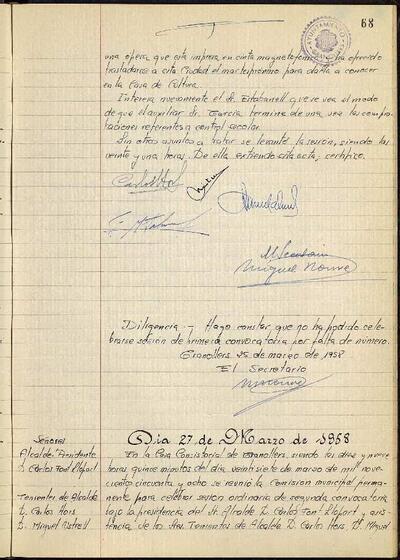 68
AYUNTAMIENTO
una opera que está impresa en cinta magnetofónica ha ofrecido
trasladarse a esta Ciudad el martes próximo para darla a conocer
en la Casa de Cultura.
Interesa nuevamente el Sr. Estabanell que se vea el modo
de que el auxiliar Sr. Garcia termine de una vez las compro-
baciones referentes a control escolar.
Sin otros asuntos a tratar se levantó la sesion, siendo las
veinte y una horas. De ella extiendo esta acta, certifico.
Diligencia.- Hago constar que no ha podido cele-
brarse sesion de primera convocatoria por falta de número.
Granollers 25 de marzo de 1958
El Secretario
Señores
Alcalde Presidente
D. Carlos Font Llopart
Tenientes de Alcalde
D. Carlos Hors
D. Miguel
Dia 27 de Marzo de 1958
En la Casa Consistorial de Granollers, siendo las diez y nueve
horas quince minutos del dia veintisiete de marzo de mil nove-
cientos cincuenta y ocho se reunió la Comision municipal perma-
nente para celebrar sesion ordinaria de segunda convocatoria
bajo la presidencia del Sr. Alcalde D. Carlos Font Llopart, y asis-
tencia de los Sres. Tenientes de Alcalde D. Carlos Hors, D. Miguel